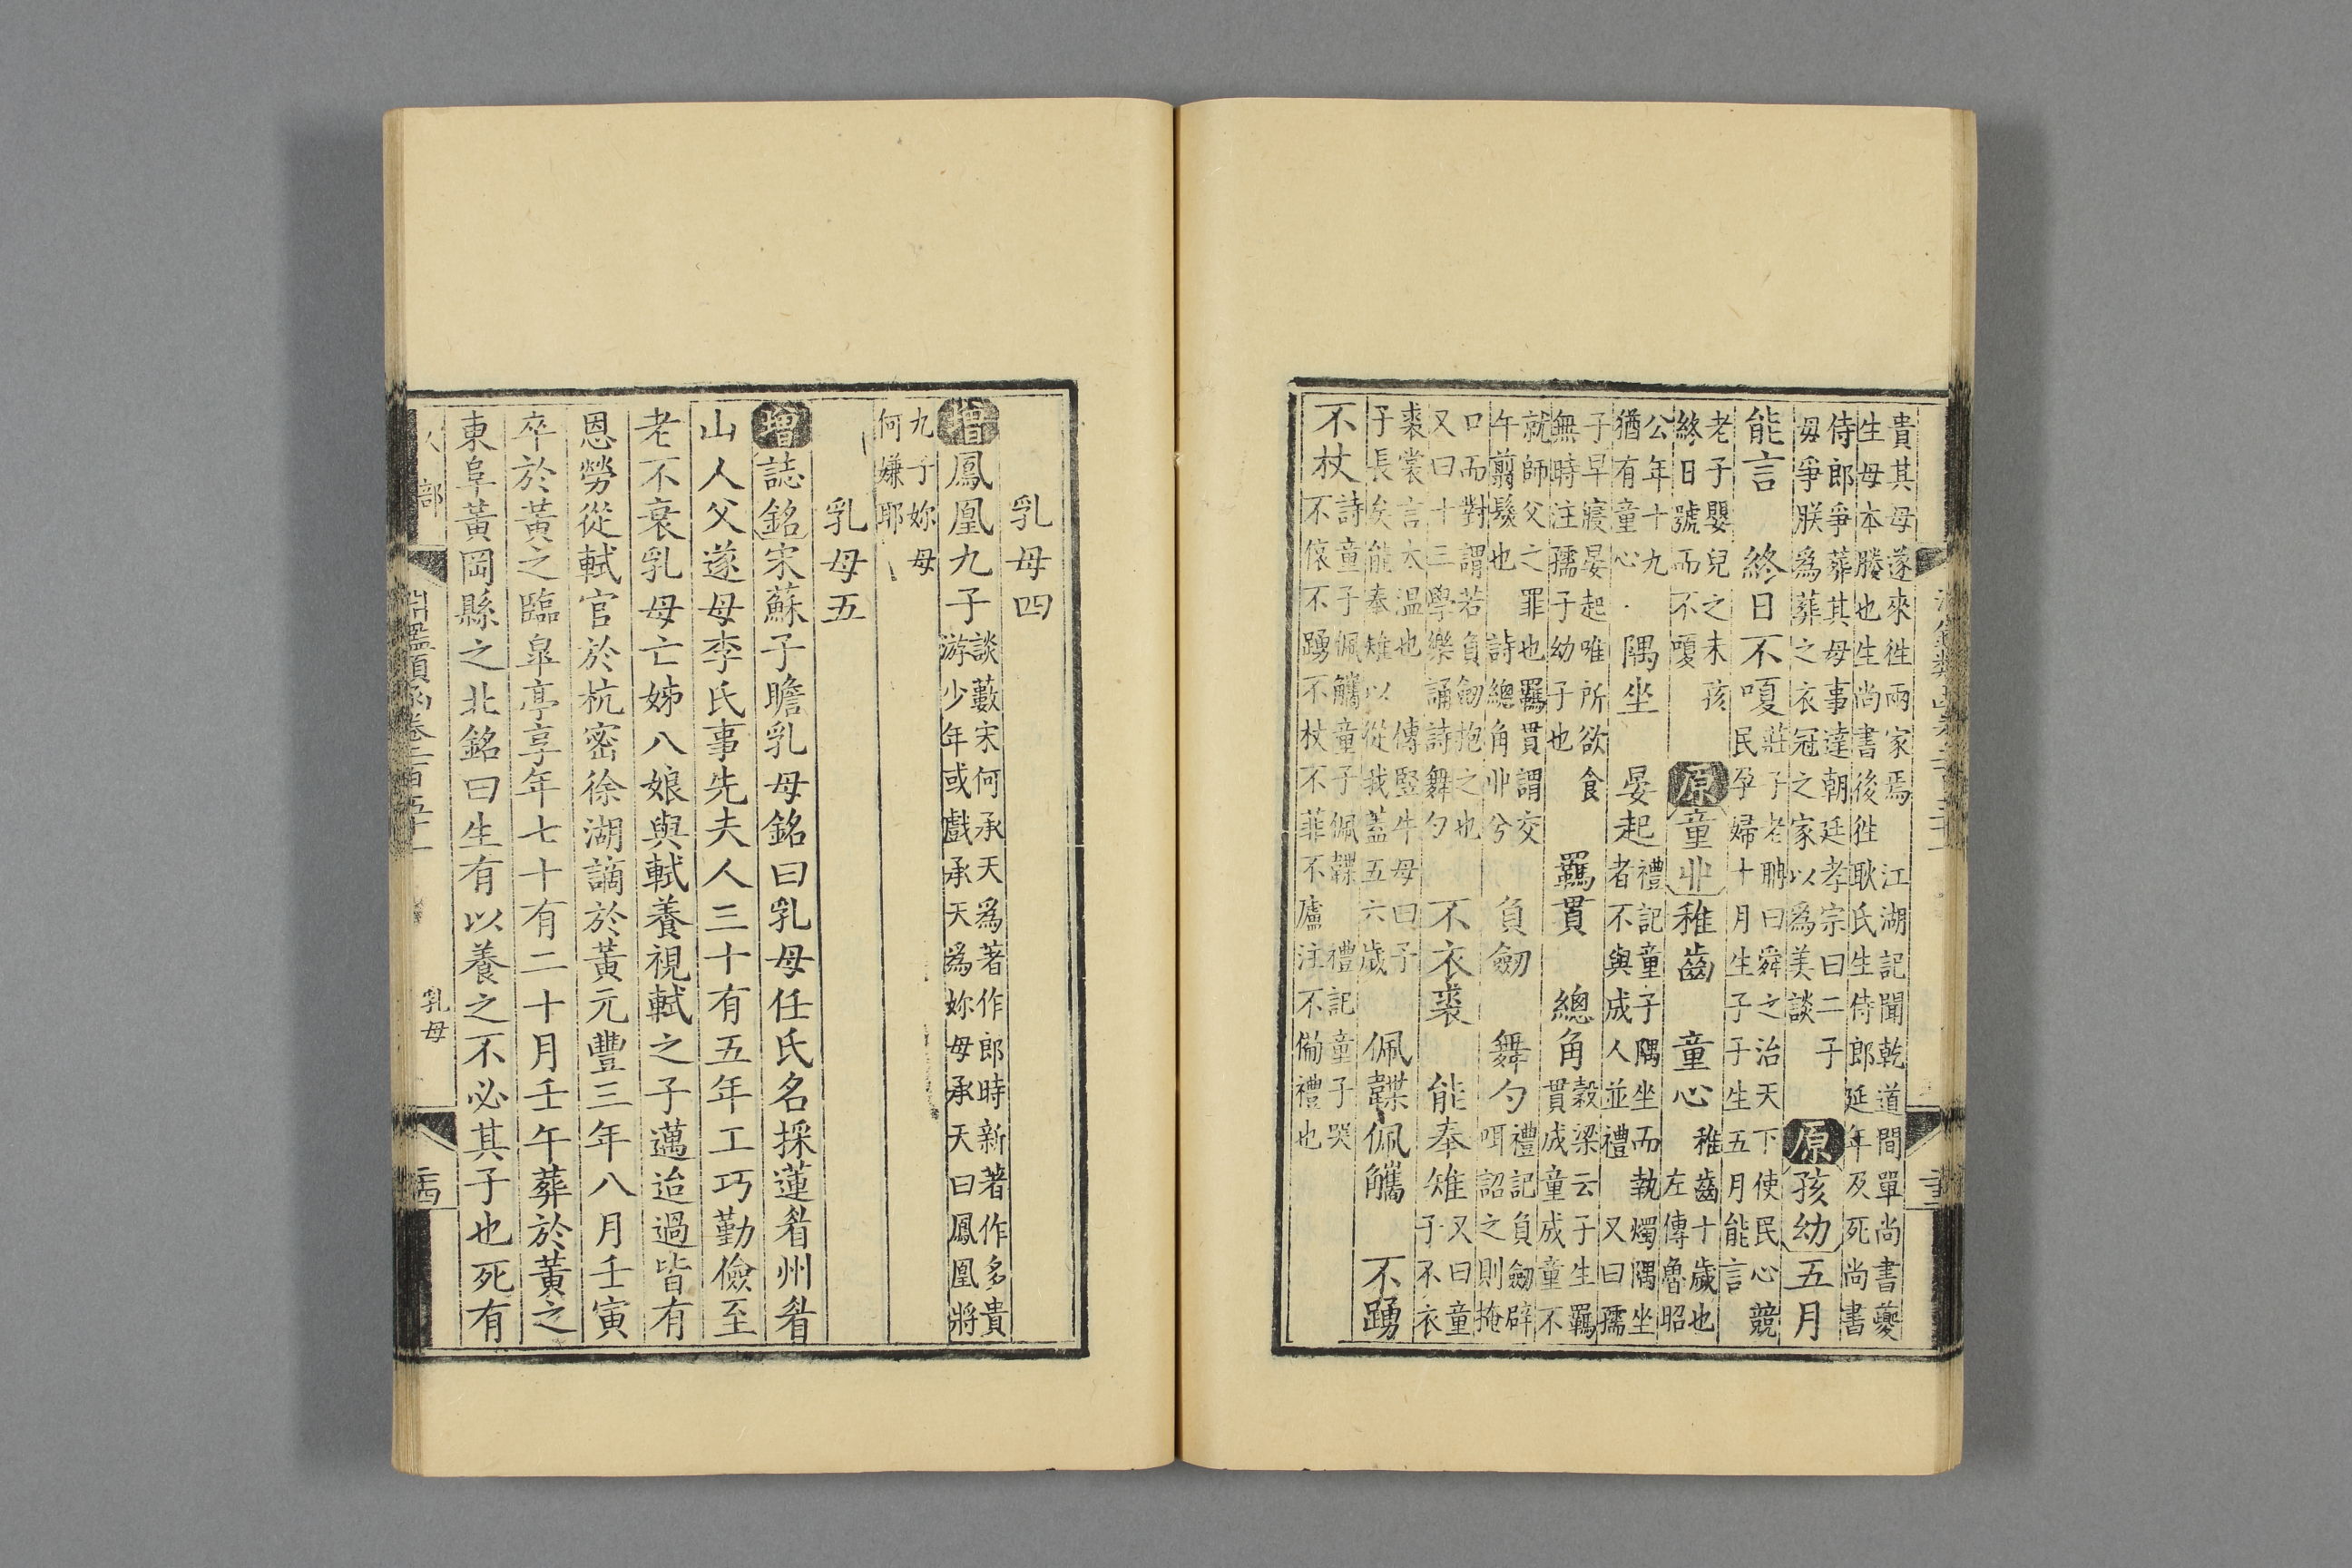 貴其母遂來徃兩家焉　江湖記聞乾道間單尚書夔
生母本媵也生尚書後徃耿氏生侍郎延年及死尚書
侍郎爭葬其母事達朝廷孝宗曰二子
毋爭朕爲葬之衣冠之家以爲美談
原孩幼五月
能言　終日不嗄
莊子老聃曰舜之治天下使民心競
民孕婦十月生子子生五月能言
老子嬰兒之未孩
終日號而不嗄
原童丱　稚齒　童心
稚齒十歲也
左傳魯昭
公年十九
猶有童心
隅坐　晏起
禮記童子隅坐而執燭隅坐
者不與成人並禮　又曰孺
子早寢晏起唯所欲食
無時注孺子幼子也
羈貫　總角
穀梁云子生羈
貫成童成童不
就師父之罪也羈貫謂交
午剪髮也　詩總角丱兮
負劒　舞勺
禮記負劒辟
咡詔之則掩
口而對謂若負劒抱之也
又曰十三學樂誦詩舞勺
不衣裘　能奉雉
又曰童
子不衣
裘裳言太温也　傳豎牛母曰子
子長矣能奉雉以從我蓋五六歲
佩韘佩觿　不踊
不杖
詩童子佩觿童子佩韘　禮記童子哭
不偯不踊不杖不菲不廬注不備禮也
乳母四
增鳳凰九子
談藪宋何承天爲著作郎時新著作多貴
游少年或戲承天爲妳母承天曰鳳凰將
九子妳母
何嫌耶
乳母五
增誌銘宋蘇子瞻乳母銘曰乳母任氏名採蓮眉州眉
山人父遂母李氏事先夫人三十有五年工巧勤儉至
老不衰乳母亡姊八娘與軾養視軾之子邁迨過皆有
恩勞從軾官於杭密徐湖謫於黃元豐三年八月壬寅
卒於黃之臨臯亭享年七十有二十月壬午葬於黃之
東阜黃岡縣之北銘曰生有以養之不必其子也死有
乳母